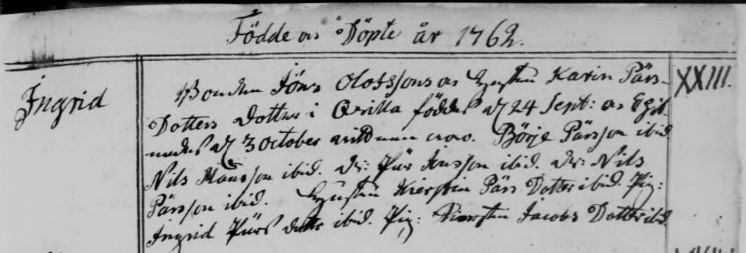 Födde os Döpte år 1762.
Ingrid
Bonden Jöns Olofssons os Hustru Karin Pärs- XXIII.
Dotters Dotter i Qvilla föddes d 24 Sept: os
d 3 October Börje Pärsson ibid
Nils Hansson ibid. Dr: Pär Jönsson ibid. Dr: Nils
Pärsson ibid. Hustru Kiersten Pärs Dotter ibid. Pig:
Ingrid Pärs dotter ibid. Pig: Kiersten Jacobs Dotter ibd